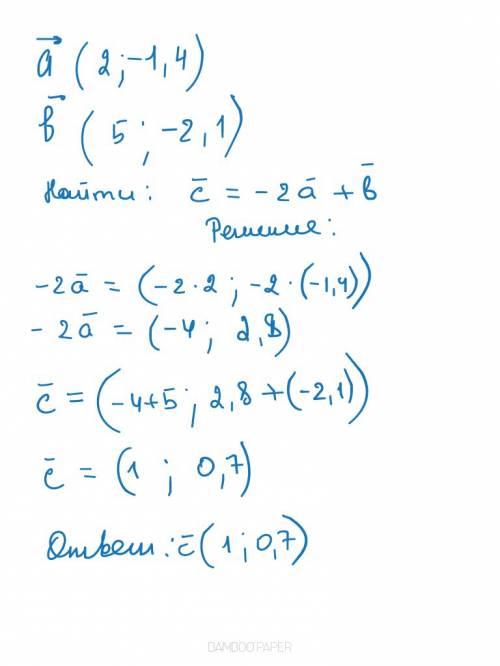 a⃗ (2; -1,4)
b⃗ (5; -2,1)
Найти: c̄ = -2ā + b̄
Решение:
-2ā = (-2·2; -2·(-1,4))
-2ā = (-4; 2,8)
c̄ = (-4+5; 2,8+(-2,1))
c̄ = (1; 0,7)
Ответ: c̄(1; 0,7)
BAMBOOPAPER